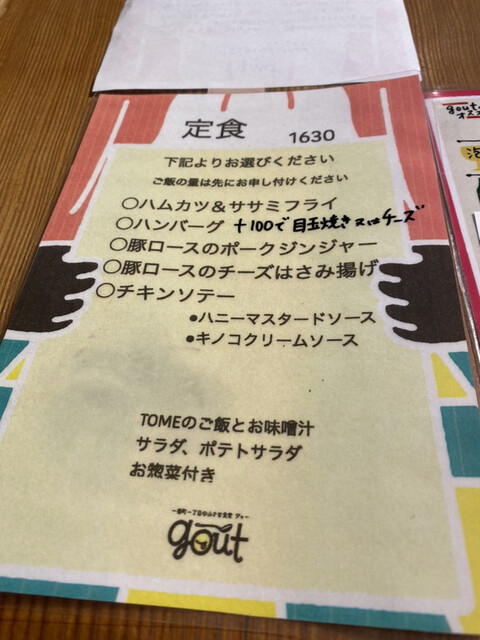 定食 1630
下記よりお選びください
ご飯の量は先にお申し付けください
○ハムカツ&ササミフライ
○ハンバーグ +100で目玉焼き又はチーズ
○豚ロースのポークジンジャー
○豚ロースのチーズはさみ揚げ
○チキンソテー
●ハニーマスタードソース
●キノコクリームソース
TOMEのご飯とお味噌汁
サラダ、ポテトサラダ
お惣菜付き
goût
gout
オスス